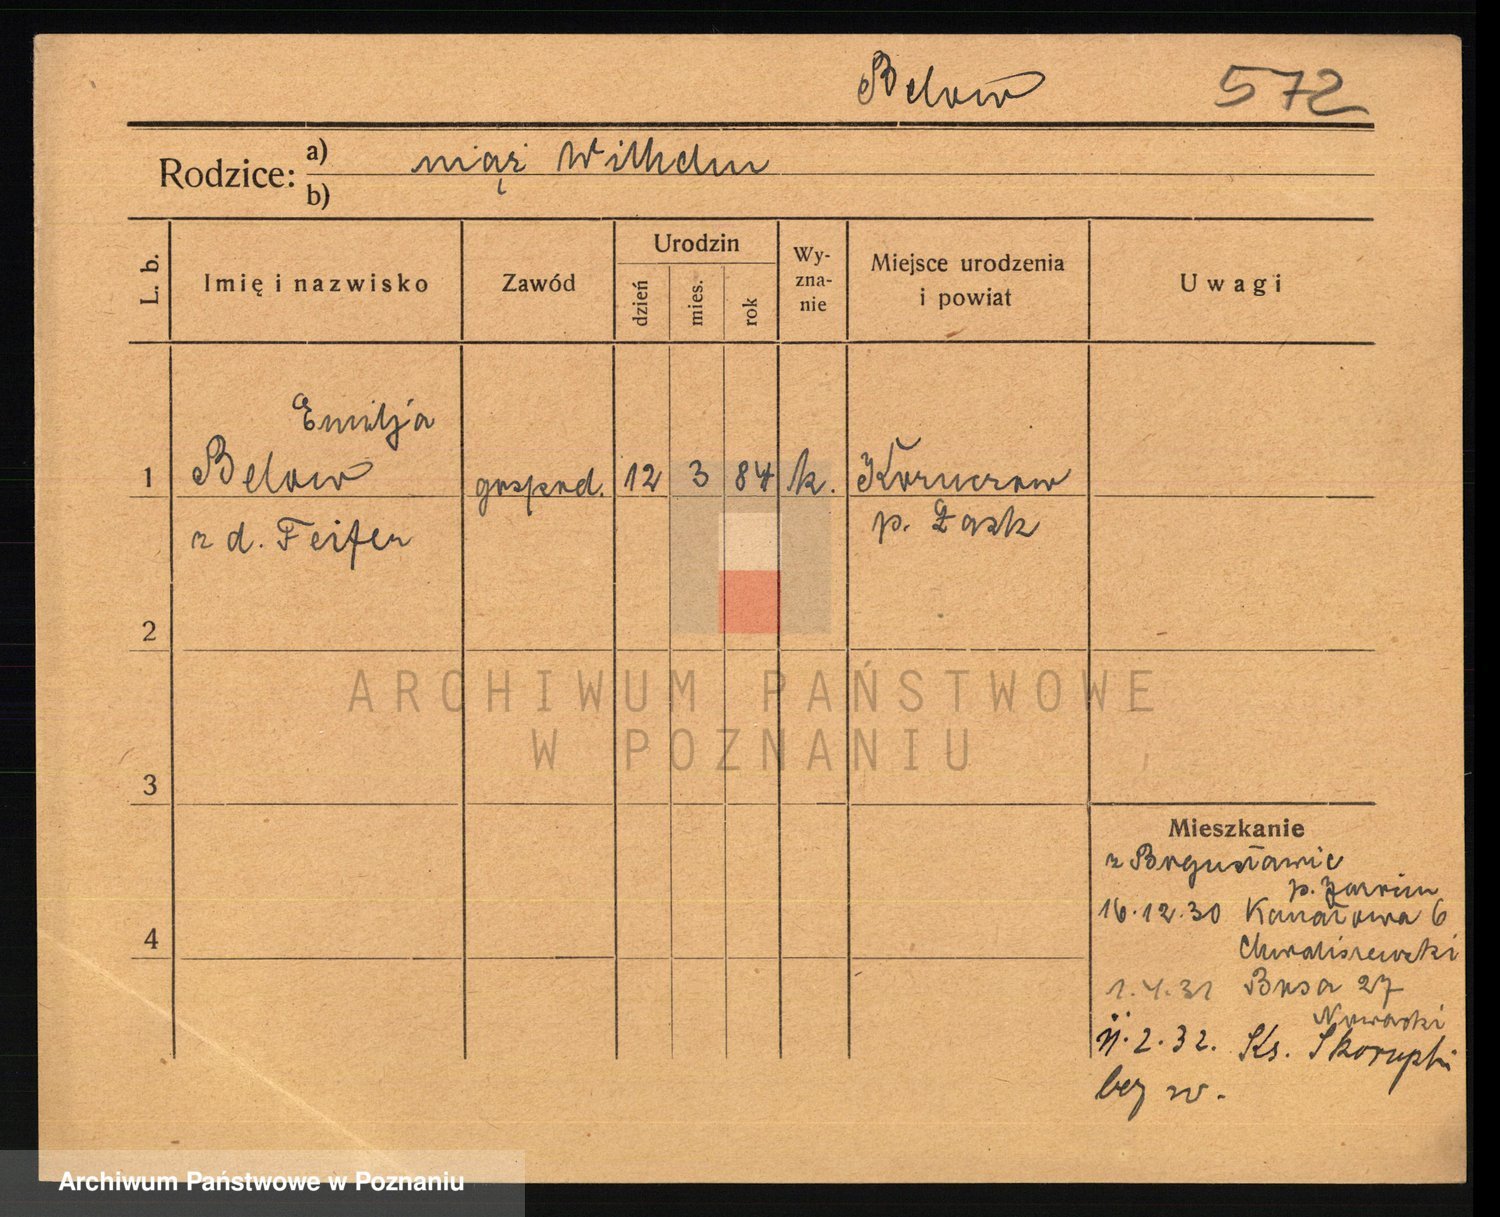 Below 572
Rodzice: a) mąż Wilhelm
b)
L. b.
Imię i nazwisko
Zawód
Urodzin
dzień
mies.
rok
Wy-
zna-
nie
Miejsce urodzenia
i powiat
Uwagi
Emilja
1 Below gospod. 12 3 84 k.
z d. Feifer p. Łask
2
ARCHIWUM PAŃSTWOWE
W POZNANIU
3
Mieszkanie
z Bogusławic
p.
16.12.30 Kanałowa 6
Chwaliszewski
4
1.4.31 Busa 27
Nowacki
11.2.32. Ks. Skorupki
bez w.
Archiwum Państwowe w Poznaniu